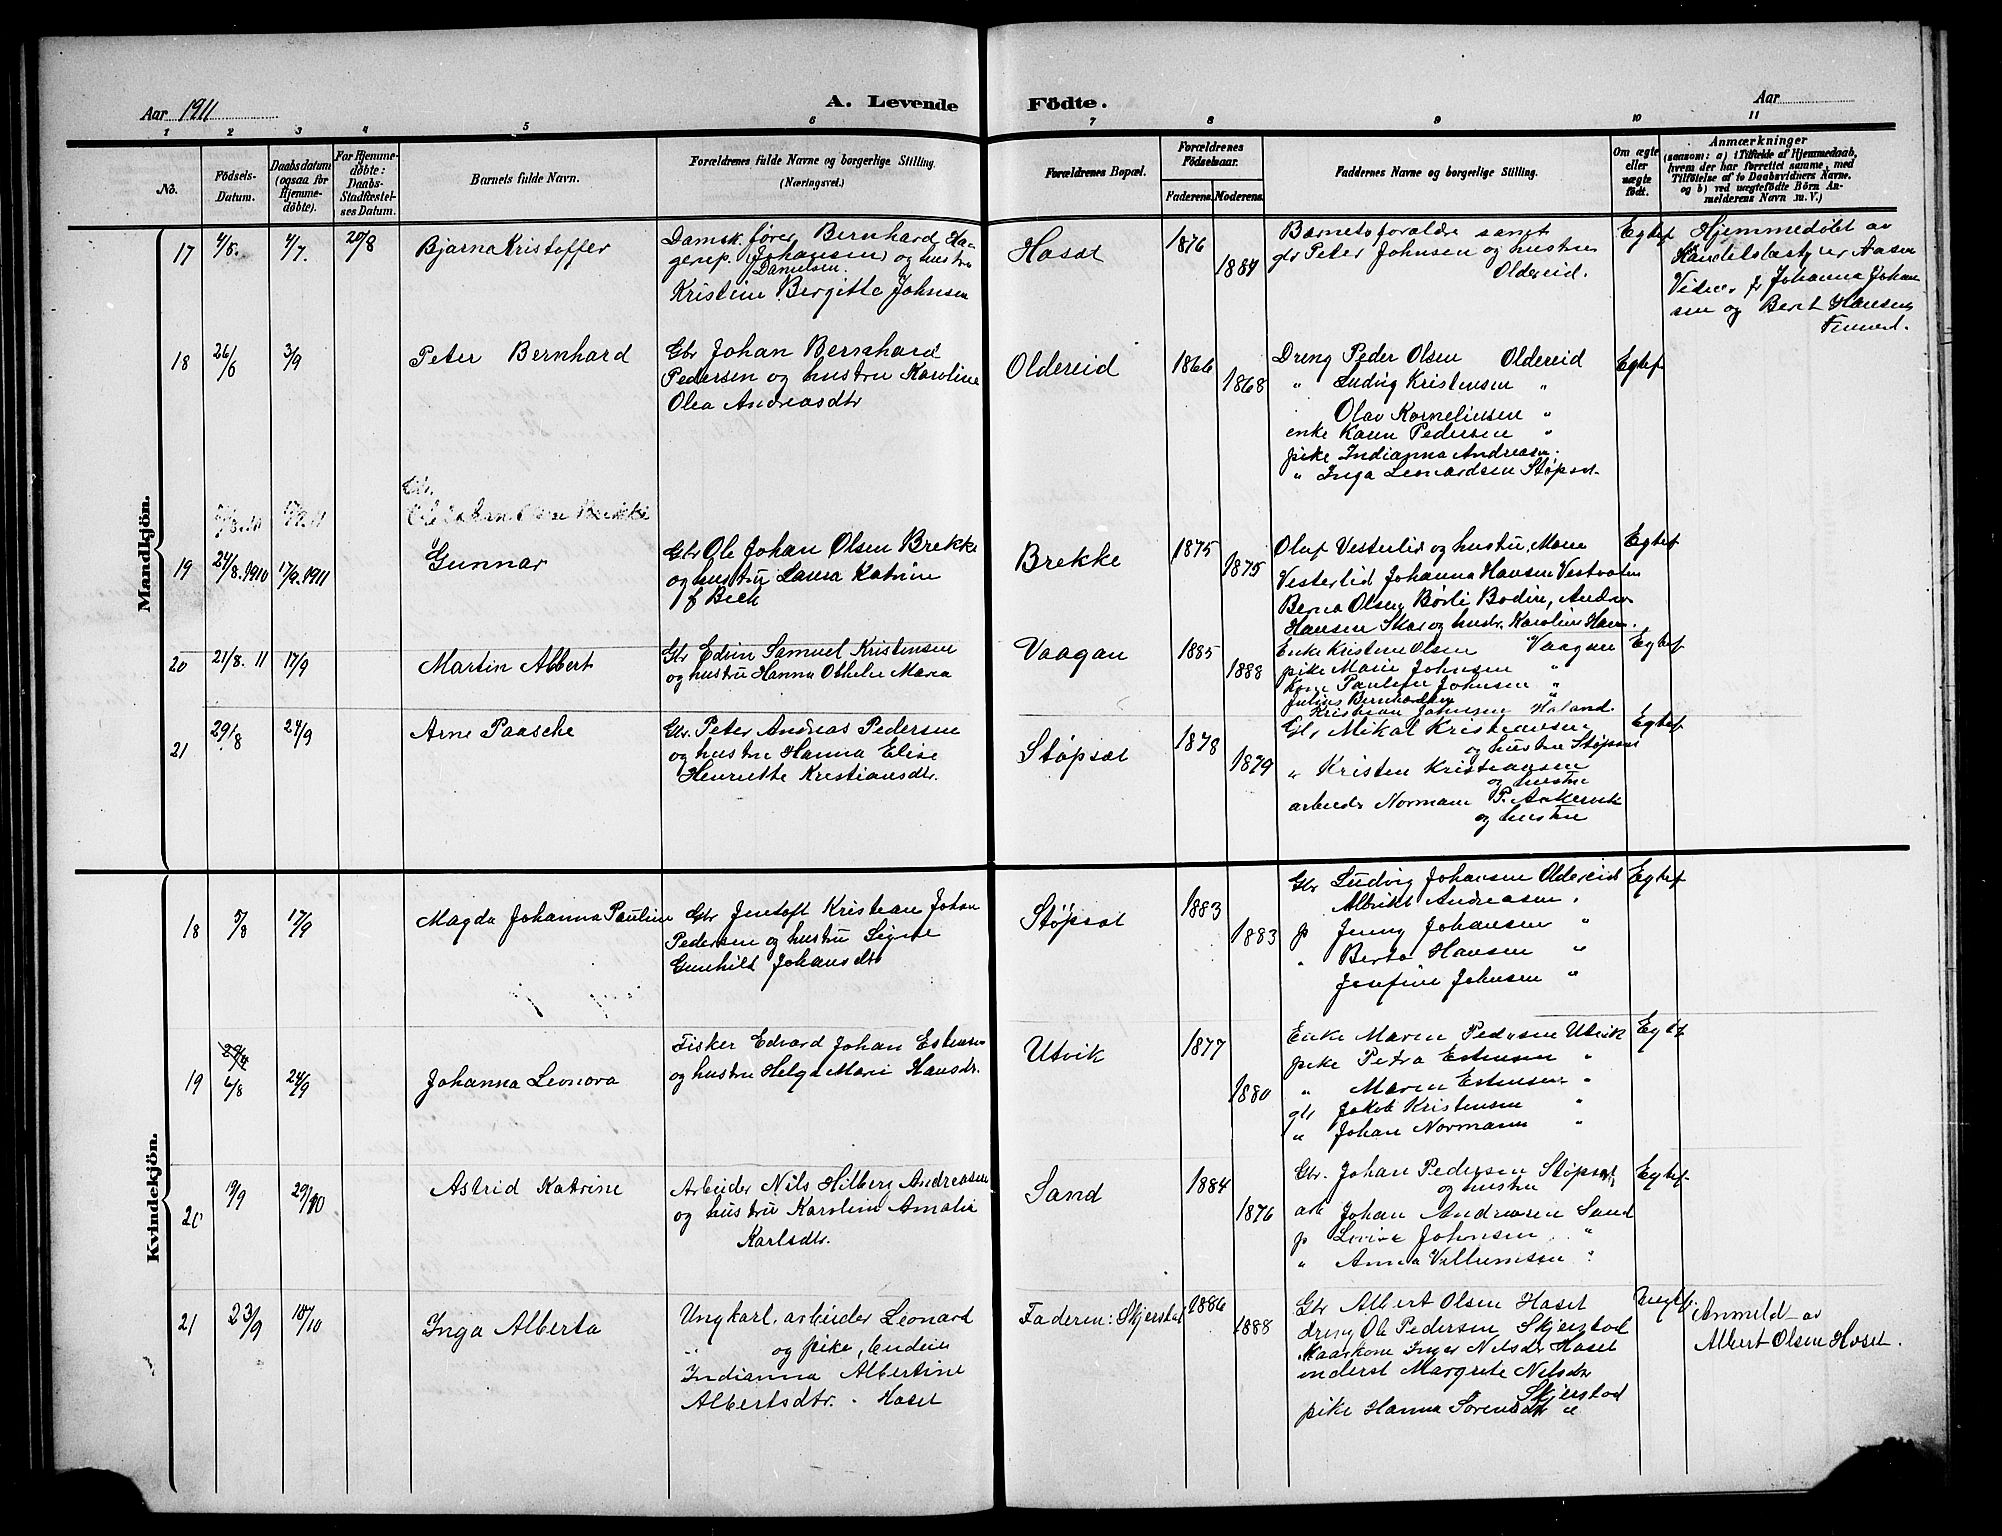 Aar 1911
A. Levende Födte.
Aar
1 2 3 4 5 6 7 8 9 10 11
No.
Födsels-Datum.
Daabsdatum (ogsaa for Hjemme-döbte).
For Hjemme-döbte: Daabs-Stadfæstel-ses Datum.
Barnets fulde Navn.
Forældrenes fulde Navne og borgerlige Stilling.
(Næringsvei.)
Forældrenes Bopæl.
Forældrenes Födselsaar.
Faderens. Moderens.
Faddernes Navne og borgerlige Stilling.
Om ægte eller uægte födt.
Anmærkninger
(saasom: a) i Tilfælde af Hjemmedaab,
hvem der har forrettet samme, med
Tilföielse af to Daabsvidners Navne.
og b) ved uægtefödte Börn An-
melderens Navn m. V.)
Mandkjön.
17 4/5. 4/7. 20/8 Bjarna Kristoffer
Damsk.fører Bernhard Ha-
gerup (Johansen) og hustru
Danielsen.
Kristine Bergitte Johnsen
Hasæt 1876 1884
Barnets forældre samt
gbr Peter Johnsen og hustru
Oldereid.
Egtef
Hjemmedøbt av
Handelsbestyrer Aasen
Vidner pr Johanna Johan
sen og Berit Hansen
18 26/6 3/9 Peter Bernhard
Gbr Johan Bernhard
Pedersen og hustru Karoline
Olea Andreasdtr
Oldereid 1866 1868
Dreng Peder Olsen Oldereid
" Ludvig Kristensen "
Olav Korneliussen "
enke Karen Pedersen "
pike Indianna Andreasen.
" Inga Leonardsen Støpset
Egtef
19 24/8.1910 17/9.1911 Gunnar
Gbr Ole Johan Olsen Brekke
og hustru Laura Katrine
f Beck
Brekke 1875 1875
Olaf Vesterlid og hustru, Marie
Vesterlid Johanna Hansen Vestvaten
Berna Olsen Børli Bodin, Andre
Hansen Skar og hustr. Karoline Hans.
Egtef
20 21/8.11 17/9 Martin Albert
Gbr Edvin Samuel Kristensen
og hustru Hanna Othelie Maria
Vaagan 1885 1888
Enke Kristine Olsen Vaagan
pike Marie Johnsen "
Kone Pauline Johnsen "
Julius Bernhardsen "
Kristian Johnsen Høland.
Egtef
21 29/8 24/9 Arne Paasche
Gbr. Peter Andreas Pedersen
og hustru Hanna Elise
Henriette Kristiansdtr.
Støpsæt 1878 1879
Gbr Mikal Kristiansen
og hustru Støpset
" Kristen Kristiansen
og hustru
arbeider Normann P. Ankervik
og hustru
Egtef
Kvindekjön.
18 5/8 17/9 Magda Johanna Pauline
Gbr Jentoft Kristian Johan
Pedersen og hustru Signe
Gunhild Johansdtr
Støpsæt 1883 1883
Gbr Ludvig Johansen Oldereid
Albrikt Andreasen.
p Jenny Johansen "
" Berta Hansen "
Josefine Johnsen "
Egtef
19 6/8 24/9 Johanna Leonora
Fisker Edvard Johan Estensen
og hustru Helga Marie Hansdr.
Utvik 1877 1880
Enke Maren Pedersen Utvik
pike Petra Estensen "
" Maren Estensen "
gbr Jakob Kristensen "
" Johan Normann "
Egtef
20 19/9 29/10 Astrid Katrine
Arbeider Nils Hilberg Andreasen
og hustru Karoline Amalie
Karlsdtr.
Sand 1884 1876
Gbr. Johan Pedersen Støpset
og hustru
arb Johan Andreasen Sand
p Lovise Johnsen "
" Anna Villumsen "
Egtef
21 23/9 18/10 Inga Alberta
Ungkarl, arbeider Leonard
og pike,
Indianna Albertine
Albertsdtr. - Haset
Faderen: Skjerstad 1886 1888
Gbr Albert Olsen Haset
dreng Ole Pedersen Skjerstad
Kaarkone Inger Nilsdr Haset
inderst Margrete Nilsdr
Skjerstad
pike Hanna Sorensdtr "
Uegtef.
Anmeld- av
Albert Olsen Haset.